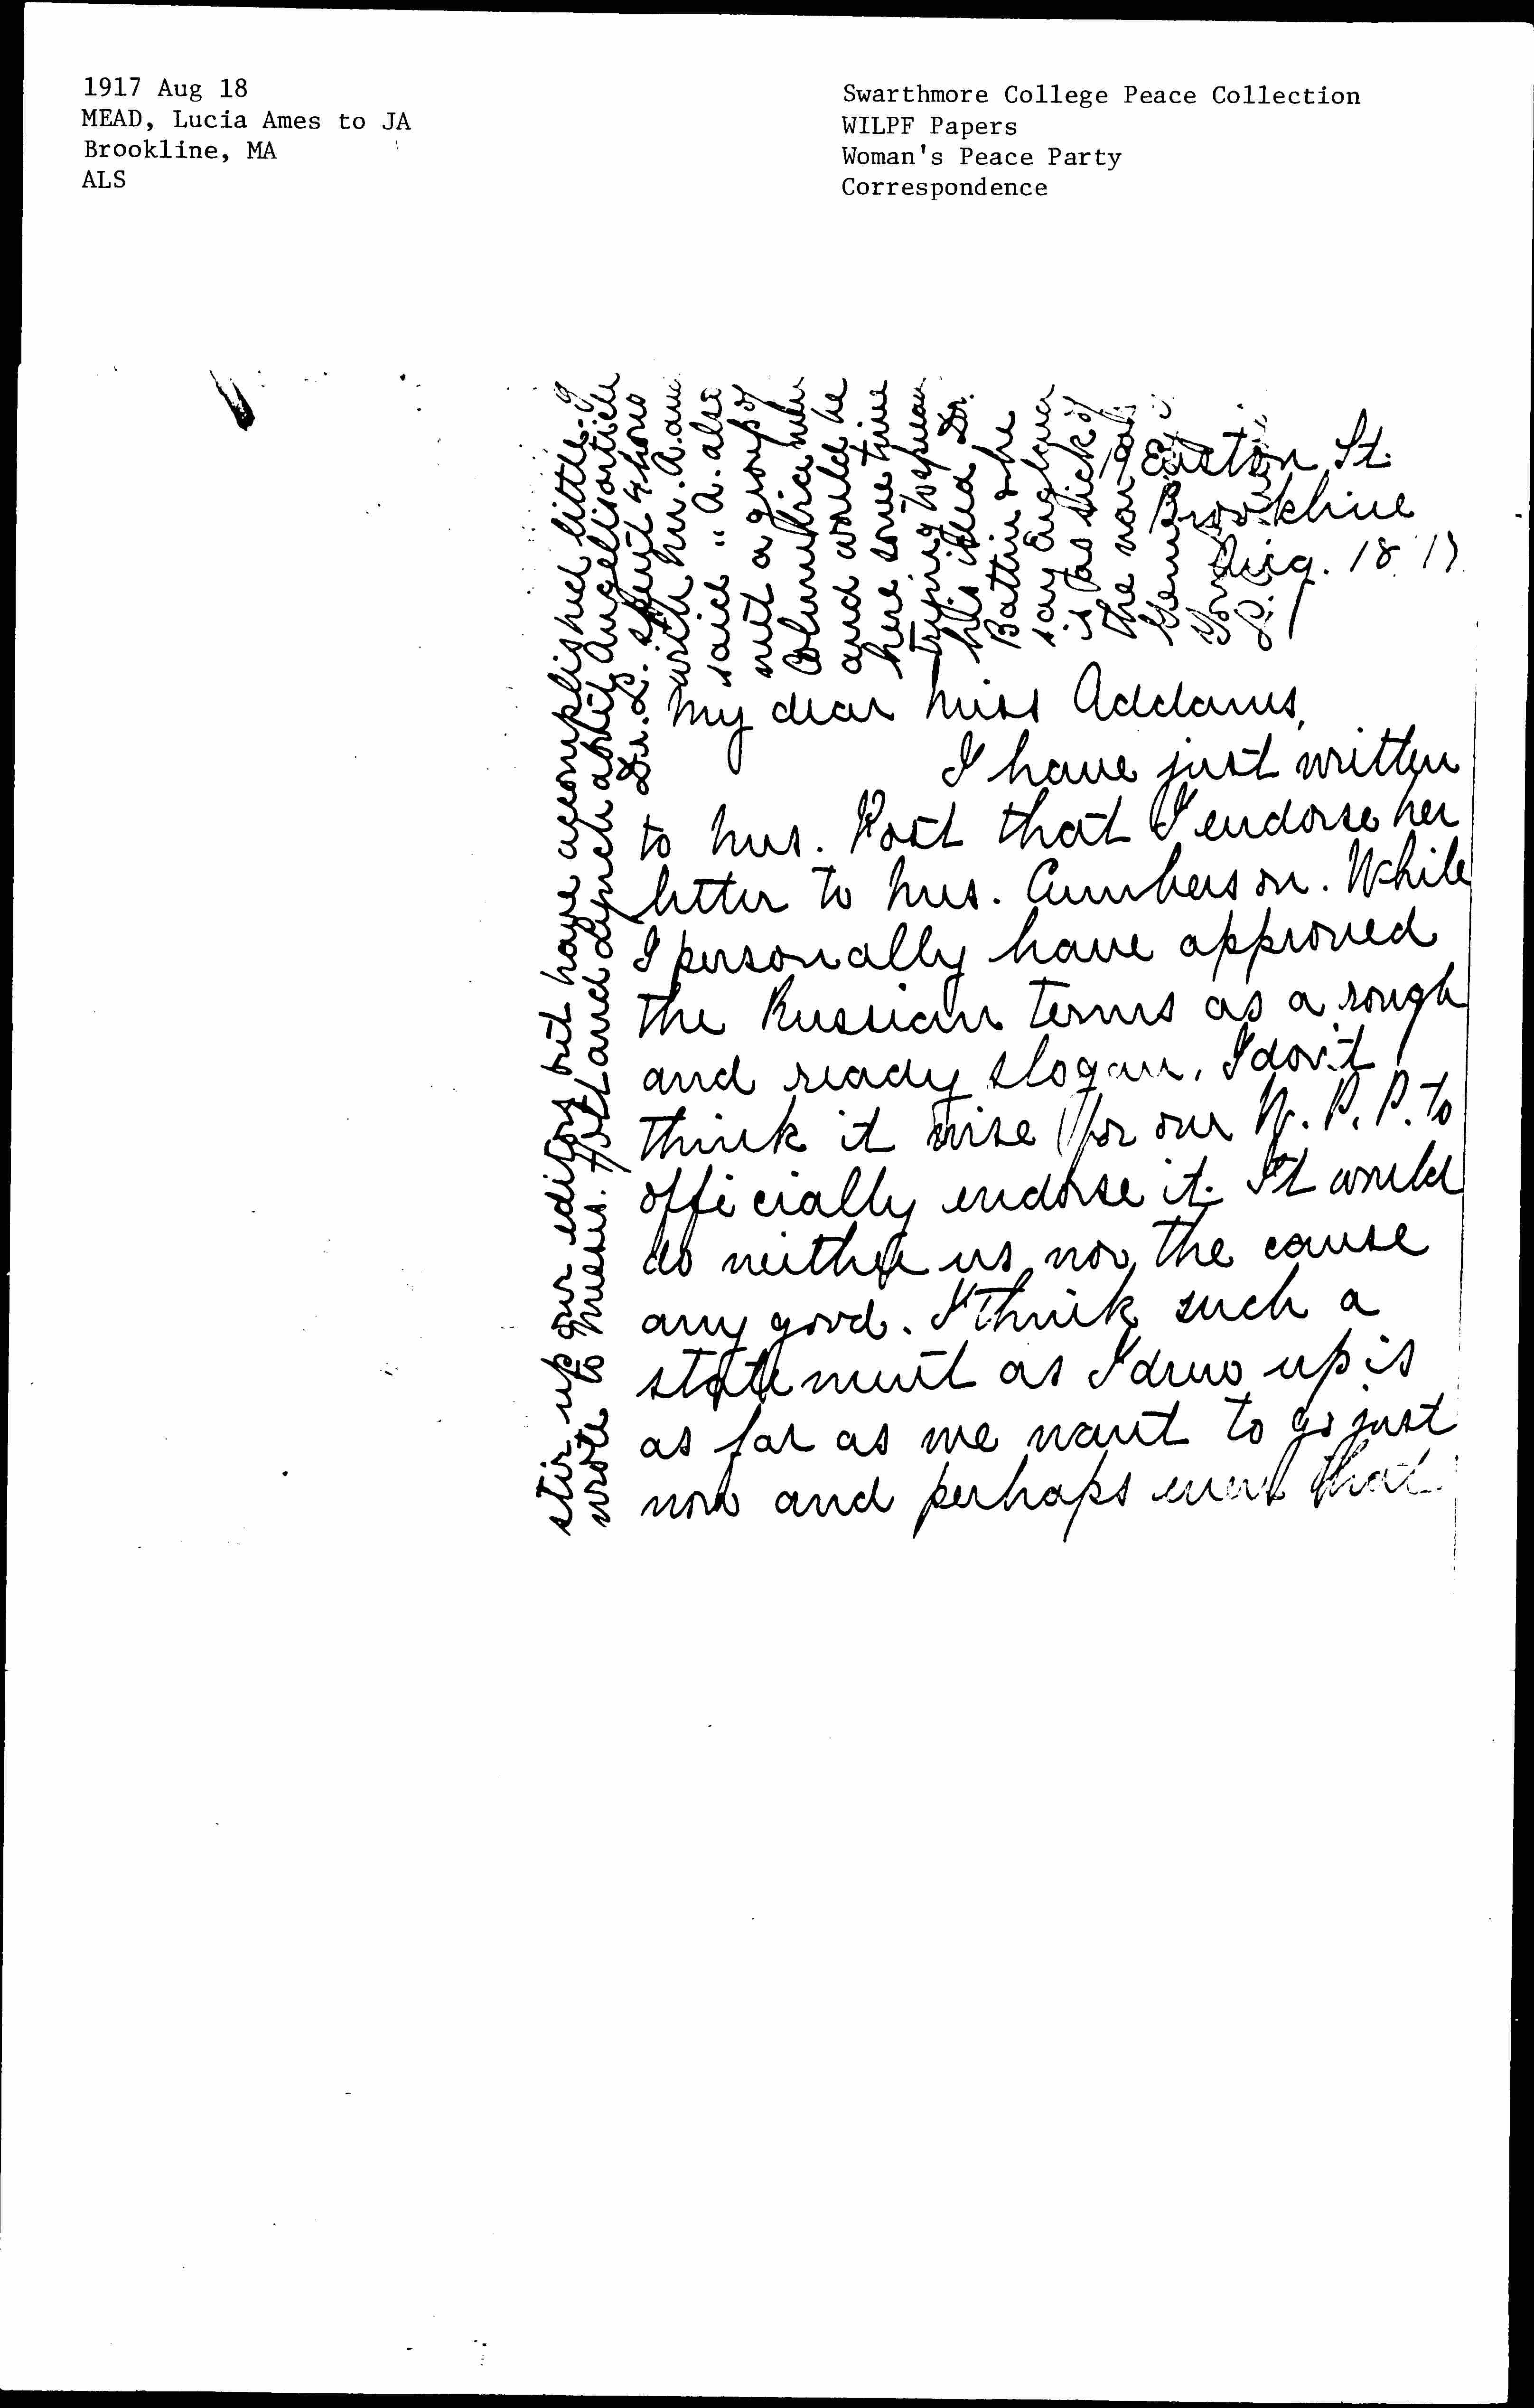 1917 Aug 18
MEAD, Lucia Ames to JA
Brookline, MA
ALS
Swarthmore College Peace Collection
WILPF Papers
Woman's Peace Party
Correspondence
19 Euston St.
Brookline
Aug. 18 '17
My dear Miss Addams,
I have just written
to Mrs. Post that I endorse her
letter to Mrs. Cumberson. While
I personally have approved
the Russian terms as a rough
and ready slogan, I don't
think it wise for our W. P. P. to
officially endorse it. It would
do neither us nor the cause
any good. I think such a
statement as I drew up is
as far as we want to go just
now and perhaps even that
stir up our editors but have accomplished little. I
wrote to Messrs. Holt and Lynch about Angell's article
Dr. L. spent 4 hours
with Mr. A. and
said " A. also
met a group of
Columbia men
and would be
here some time
trying to spread
his ideas Dr.
Battin & he
say England
is as sick of
the war as